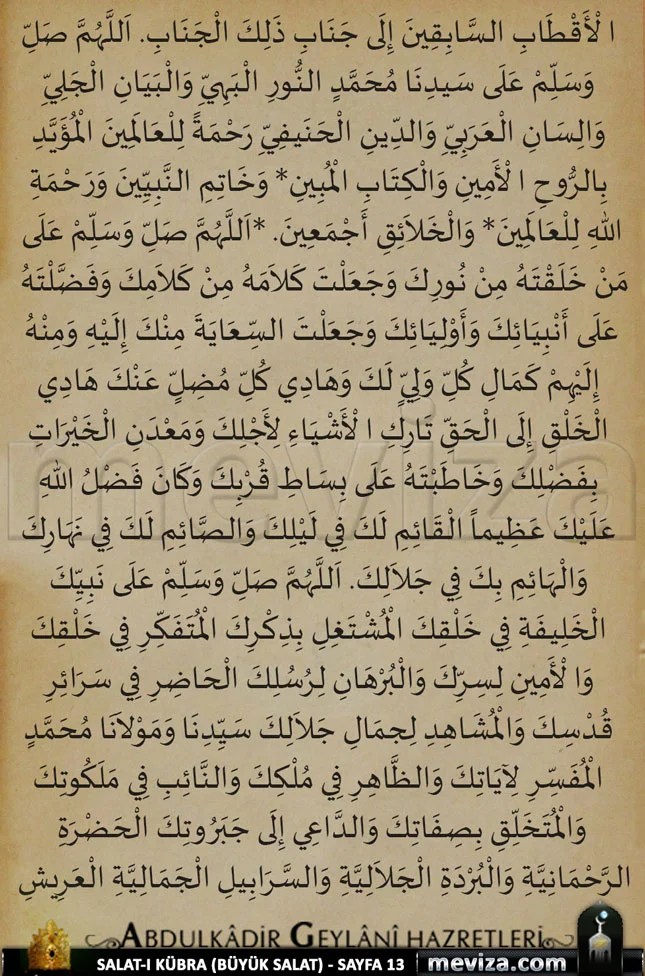 ا لْأَقْطَابِ السَّابِقِينَ إِلَى جَنَابِ ذَلِكَ الْجَنَابِ. اَللَّهُمَّ صَلِّ
وَسَلِّمْ عَلَى سَيدِنَا مُحَمَّدٍ النُّورِ الْبَهِيِّ وَالْبَيَانِ الْجَلِيِّ
وَالِسَانِ الْعَرَبِيِّ وَالدِّينِ الْحَنَيفِيِّ رَحْمَةً لِلْعَالَمِينَ الْمُؤَيَّدِ
بِالرُّوحِ ا لْأَمِينِ وَالْكِتَابِ الْمُبِينِ* وَخَاتِمِ النَّبِيِّينَ وَرَحْمَةِ
اللهِ لِلْعَالَمِينَ* وَالْخَلاَئِقِ أَجْمَعِينَ. *اَللَّهُمَّ صَلِّ وَسَلِّمْ عَلَى
مَنْ خَلَقْتَهُ مِنْ نُورِكَ وَجَعَلْتَ كَلاَمَهُ مِنْ كَلاَمِكَ وَفَضَّلْتَهُ
عَلَى أَنْبِيَائِكَ وَأَوْلِيَائِكَ وَجَعَلْتَ السِّعَايَةَ مِنْكَ إِلَيْهِ وَمِنْهُ
إِلَيْهِمْ كَمَالِ كُلِّ وَلِيٍّ لَكَ وَهَادِي كُلِّ مُضِلٍّ عَنْكَ هَادِي
الْخَلْقِ إِلَى الْحَقِّ تَارِكِ ا لْأَشْيَاءِ لِأَجْلِكَ وَمَعْدَنِ الْخَيْرَاتِ
بِفَضْلِكَ وَخَاطَبْتَهُ عَلَى بِسَاطِ قُرْبِكَ وَكَانَ فَضْلُ اللهِ
عَلَيْكَ عَظِيماً الْقَائِمِ لَكَ فِي لَيْلِكَ وَالصَّائِمِ لَكَ فِي نَهَارِكَ
وَالْهَائِمِ بِكَ فِي جَلاَلِكَ. اَللَّهُمَّ صَلِّ وَسَلِّمْ عَلَى نَبِيِّكَ
الْخَلِيفَةِ فِي خَلْقِكَ الْمُشْتَغِلِ بِذِكْرِكَ الْمُتَفَكِّرِ فِي خَلْقِكَ
وَا لْأَمِينِ لِسِرِّكَ وَالْبُرْهَانِ لِرُسُلِكَ الْحَاضِرِ فِي سَرَائِرِ
قُدْسِكَ وَالْمُشَاهِدِ لِجَمَالِ جَلاَلِكَ سَيِّدِنَا وَمَوْلاَنَا مُحَمَّدٍ
الْمُفَسِّرِ لِآيَاتِكَ وَالظَّاهِرِ فِي مُلْكِكَ وَالنَّائِبِ فِي مَلَكُوتِكَ
وَالْمُتَخَلِّقِ بِصِفَاتِكَ وَالدَّاعِي إِلَى جَبَرُوتِكَ الْحَضْرَةِ
الرَّحْمَانِيَّةِ وَالْبُرْدَةِ الْجَلاَلِيَّةِ وَالسَّرَابِيلِ الْجَمَالِيَّةِ الْعَرِيشِ
meviza
ABDULKÂDİR GEYLÂNÎ HAZRETLERİ
SALAT-I KÜBRA (BÜYÜK SALAT) - SAYFA 13 meviza.com